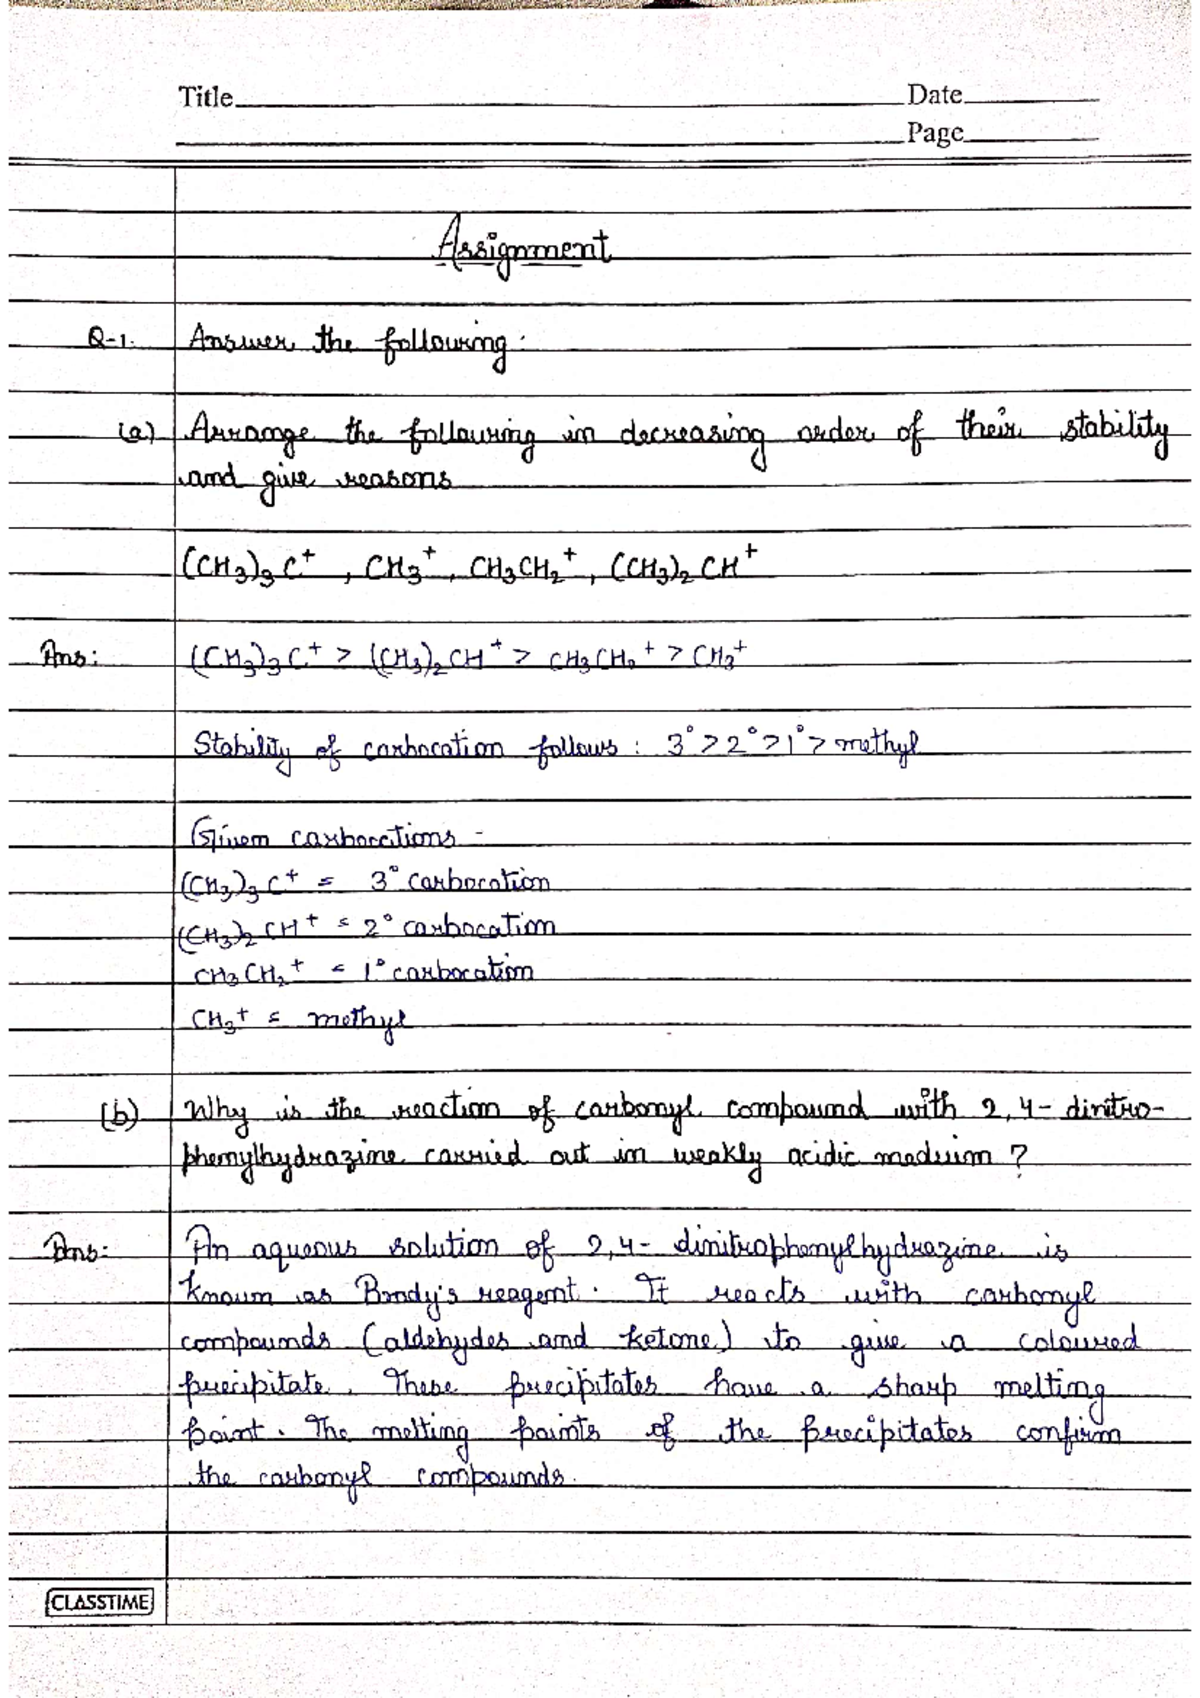 Title Date
Page
Assignment
Q-1. Answer the following:
(a) Arrange the following in decreasing order of their stability
and give reasons
(CH3)3C+, CH3+, CH3CH2+, (CH3)2CH+
Ans: (CH3)3C+ > (CH3)2CH+ > CH3CH2+ > CH3+
Stability of carbocation follows: 3° > 2° > 1° > methyl
Given carbocations -
(CH3)3C+ = 3° carbocation
(CH3)2CH+ = 2° carbocation
CH3CH2+ = 1° carbocation
CH3+ = methyl
(b) Why is the reaction of carbonyl compound with 2,4-dinitro-
phenylhydrazine carried out in weakly acidic medium?
Ans: An aqueous solution of 2,4-dinitrophenylhydrazine is
known as Brady's reagent. It reacts with carbonyl
compounds (aldehydes and ketone) to give a coloured
precipitate. These precipitates have a sharp melting
point. The melting points of the precipitates confirm
the carbonyl compounds.
CLASSTIME